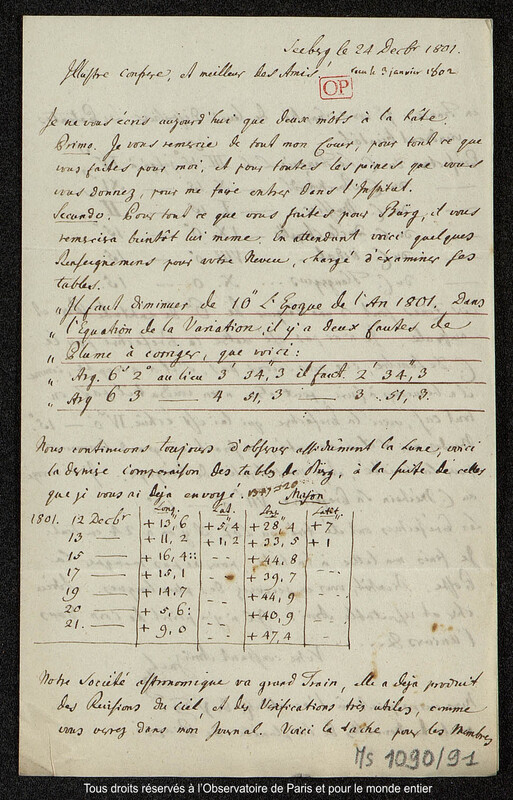 Seeberg le 24 Decbr 1801.
Illustre confrere, et meilleur des Amis, le 3 janvier 1802
OP
Je ne vous écris aujourd'hui que deux mots à la hâte.
Primo. Je vous remercie de tout mon Coeur, pour tout ce que
vous faites pour moi, et pour toutes les peines que vous
vous donnez, pour me faire entrer dans l'Institut.
Secundo. Pour tout ce que vous faites pour Bürg, il vous
remerciera bientôt lui meme. En attendant voici quelques
Renseignemens pour votre Neveu, chargé d'examiner ses
tables.
„ Il faut diminuer de 10" L'Epoque de l'An 1801. Dans
„ l'Equation de la Variation il y a deux fautes de
„ Plume à corriger, que voici:
„ Arg. 6s 2° au lieu 3' 34", 3 il faut 2' 34", 3
„ Arg 6 3 — 4 51, 3 — 3 . 51, 3.
Nous continuons toujours d'observer assidûment la Lune, voici
la derniere comparaison des tables de Bürg, à la suite de celles
que je vous ai deja envoyé.
Mason
Long. Lat. Long. Latit.
1801. 12 Decbr + 13,6 + 5,4 + 28,4 + 7
13 + 11,2 + 1,2 + 33,5 + 1
15 — + 16,4:: - - + 44,8
17 — + 15,1 + 39,7
19 — + 14,7 - - + 44,9
20 — + 5,6: - - + 40,9
21. — + 9,0 - - + 47,4
Notre Société astronomique va grand Train, elle a deja produit
des Revisions du ciel et des Verifications très utiles, comme
vous verrez dans mon Journal. Voici la tache pour les Membres
Ms 1090/91
Tous droits réservés à l'Observatoire de Paris et pour le monde entier